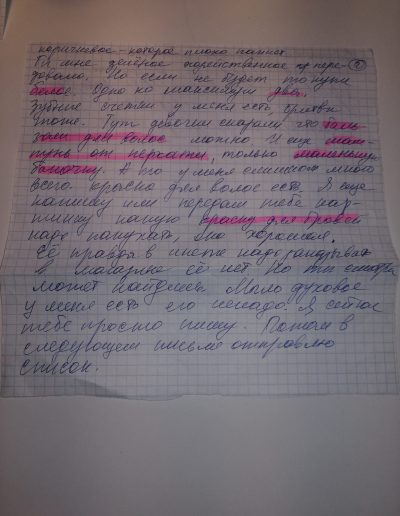 коричневое - которое плохо пахнет.
Ты мне зелёное хозяйственное пере- 2
давала. Но если не будет то купи
белое. Одно но максимум два.
Зубные щётки у меня есть, бритвы
тоже. Тут девочки сказали что баль
зам для волос можно. И ещё шам-
пунь от перхоти, только маленькую
баночку. А то у меня слишком много
всего. Краска для волос есть. Я ещё
напишу или передам тебе кар-
тинку какую краску для бровей
надо покупать, она хорошая.
Её правда в инете надо заказывать
в магазине её нет. Но ты смотри
может найдёшь. Мыло духовое
у меня есть его ненадо. Я сейчас
тебе просто пишу. Потом в
следующем письме отправлю
список.